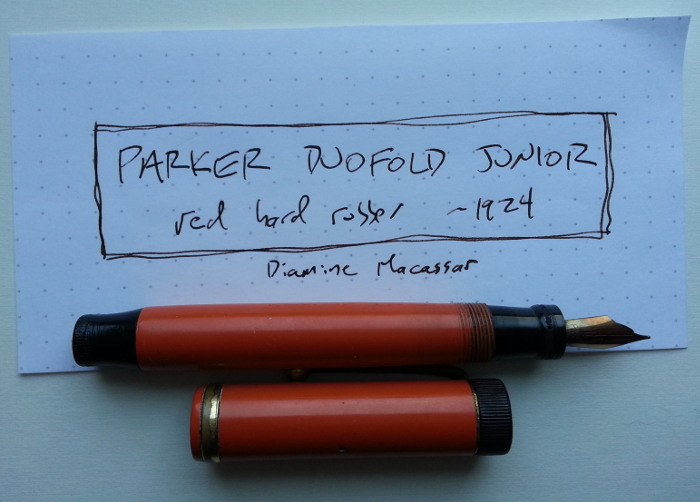 PARKER DUOFOLD JUNIOR
red hard rubber ~1924
Diamine Macassar